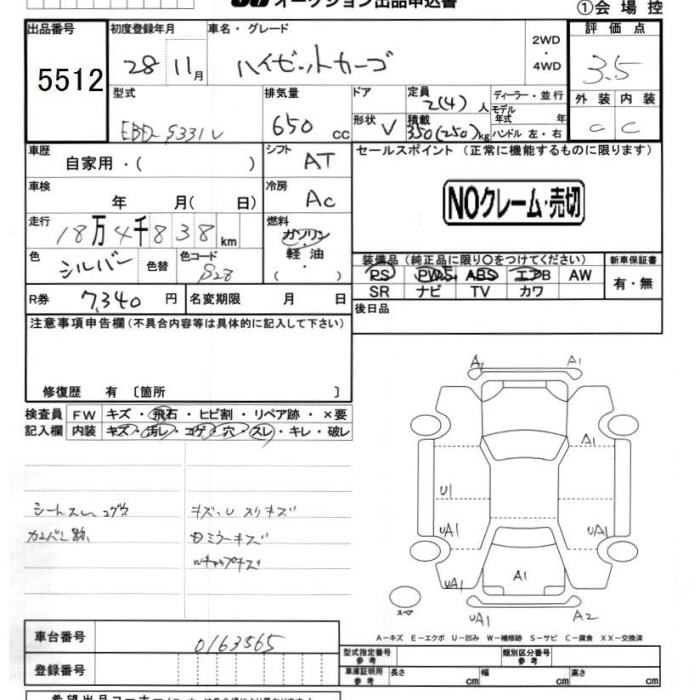 オークション出品申込書
①会場控
出品番号 初度登録年月 車名・グレード 2WD・4WD 評価点
5512 28 11月 ハイゼットカーゴ 3.5
型式 排気量 ドア 定員 ディーラー・並行 外装 内装
EBD-S331V 650cc 形状 V 2(4)人 モデル年式 年 C C
積載 350(250)kg ハンドル 左・右
車歴 自家用・( ) シフト AT セールスポイント (正常に機能するものに限ります)
車検 年 月( 日) 冷房 AC
NOクレーム・売切
走行 18万4千838km 燃料 ガソリン・軽油・( )
色 シルバー 色替 色コード S28
装備品 (純正品に限り○をつけてください) 新車保証書
PS PW ABS エアB AW 有・無
SR ナビ TV カワ
R券 7,340円 名変期限 月 日 後日品
注意事項申告欄(不具合内容等は具体的に記入して下さい)
修復歴 有 〔箇所 〕
検査員 FW キズ・飛石・ヒビ割・リペア跡・×要
記入欄 内装 キズ・汚レ・コゲ・穴・スレ・キレ・破レ
シートスレ コゲ穴
カンバン跡
キズ、U スリキズ
ミラーキズ
キャップキズ
A A1
A1
U1
UA1 UA1
UA1 A1
UA1 A2
スペア
A-キズ E-エクボ U-凹み W-補修跡 S-サビ C-腐食 XX-交換済
車台番号 0163565
登録番号
型式指定番号 参考 類別区分番号 参考
車庫証明用 参考 長さ cm 幅 cm 高さ cm